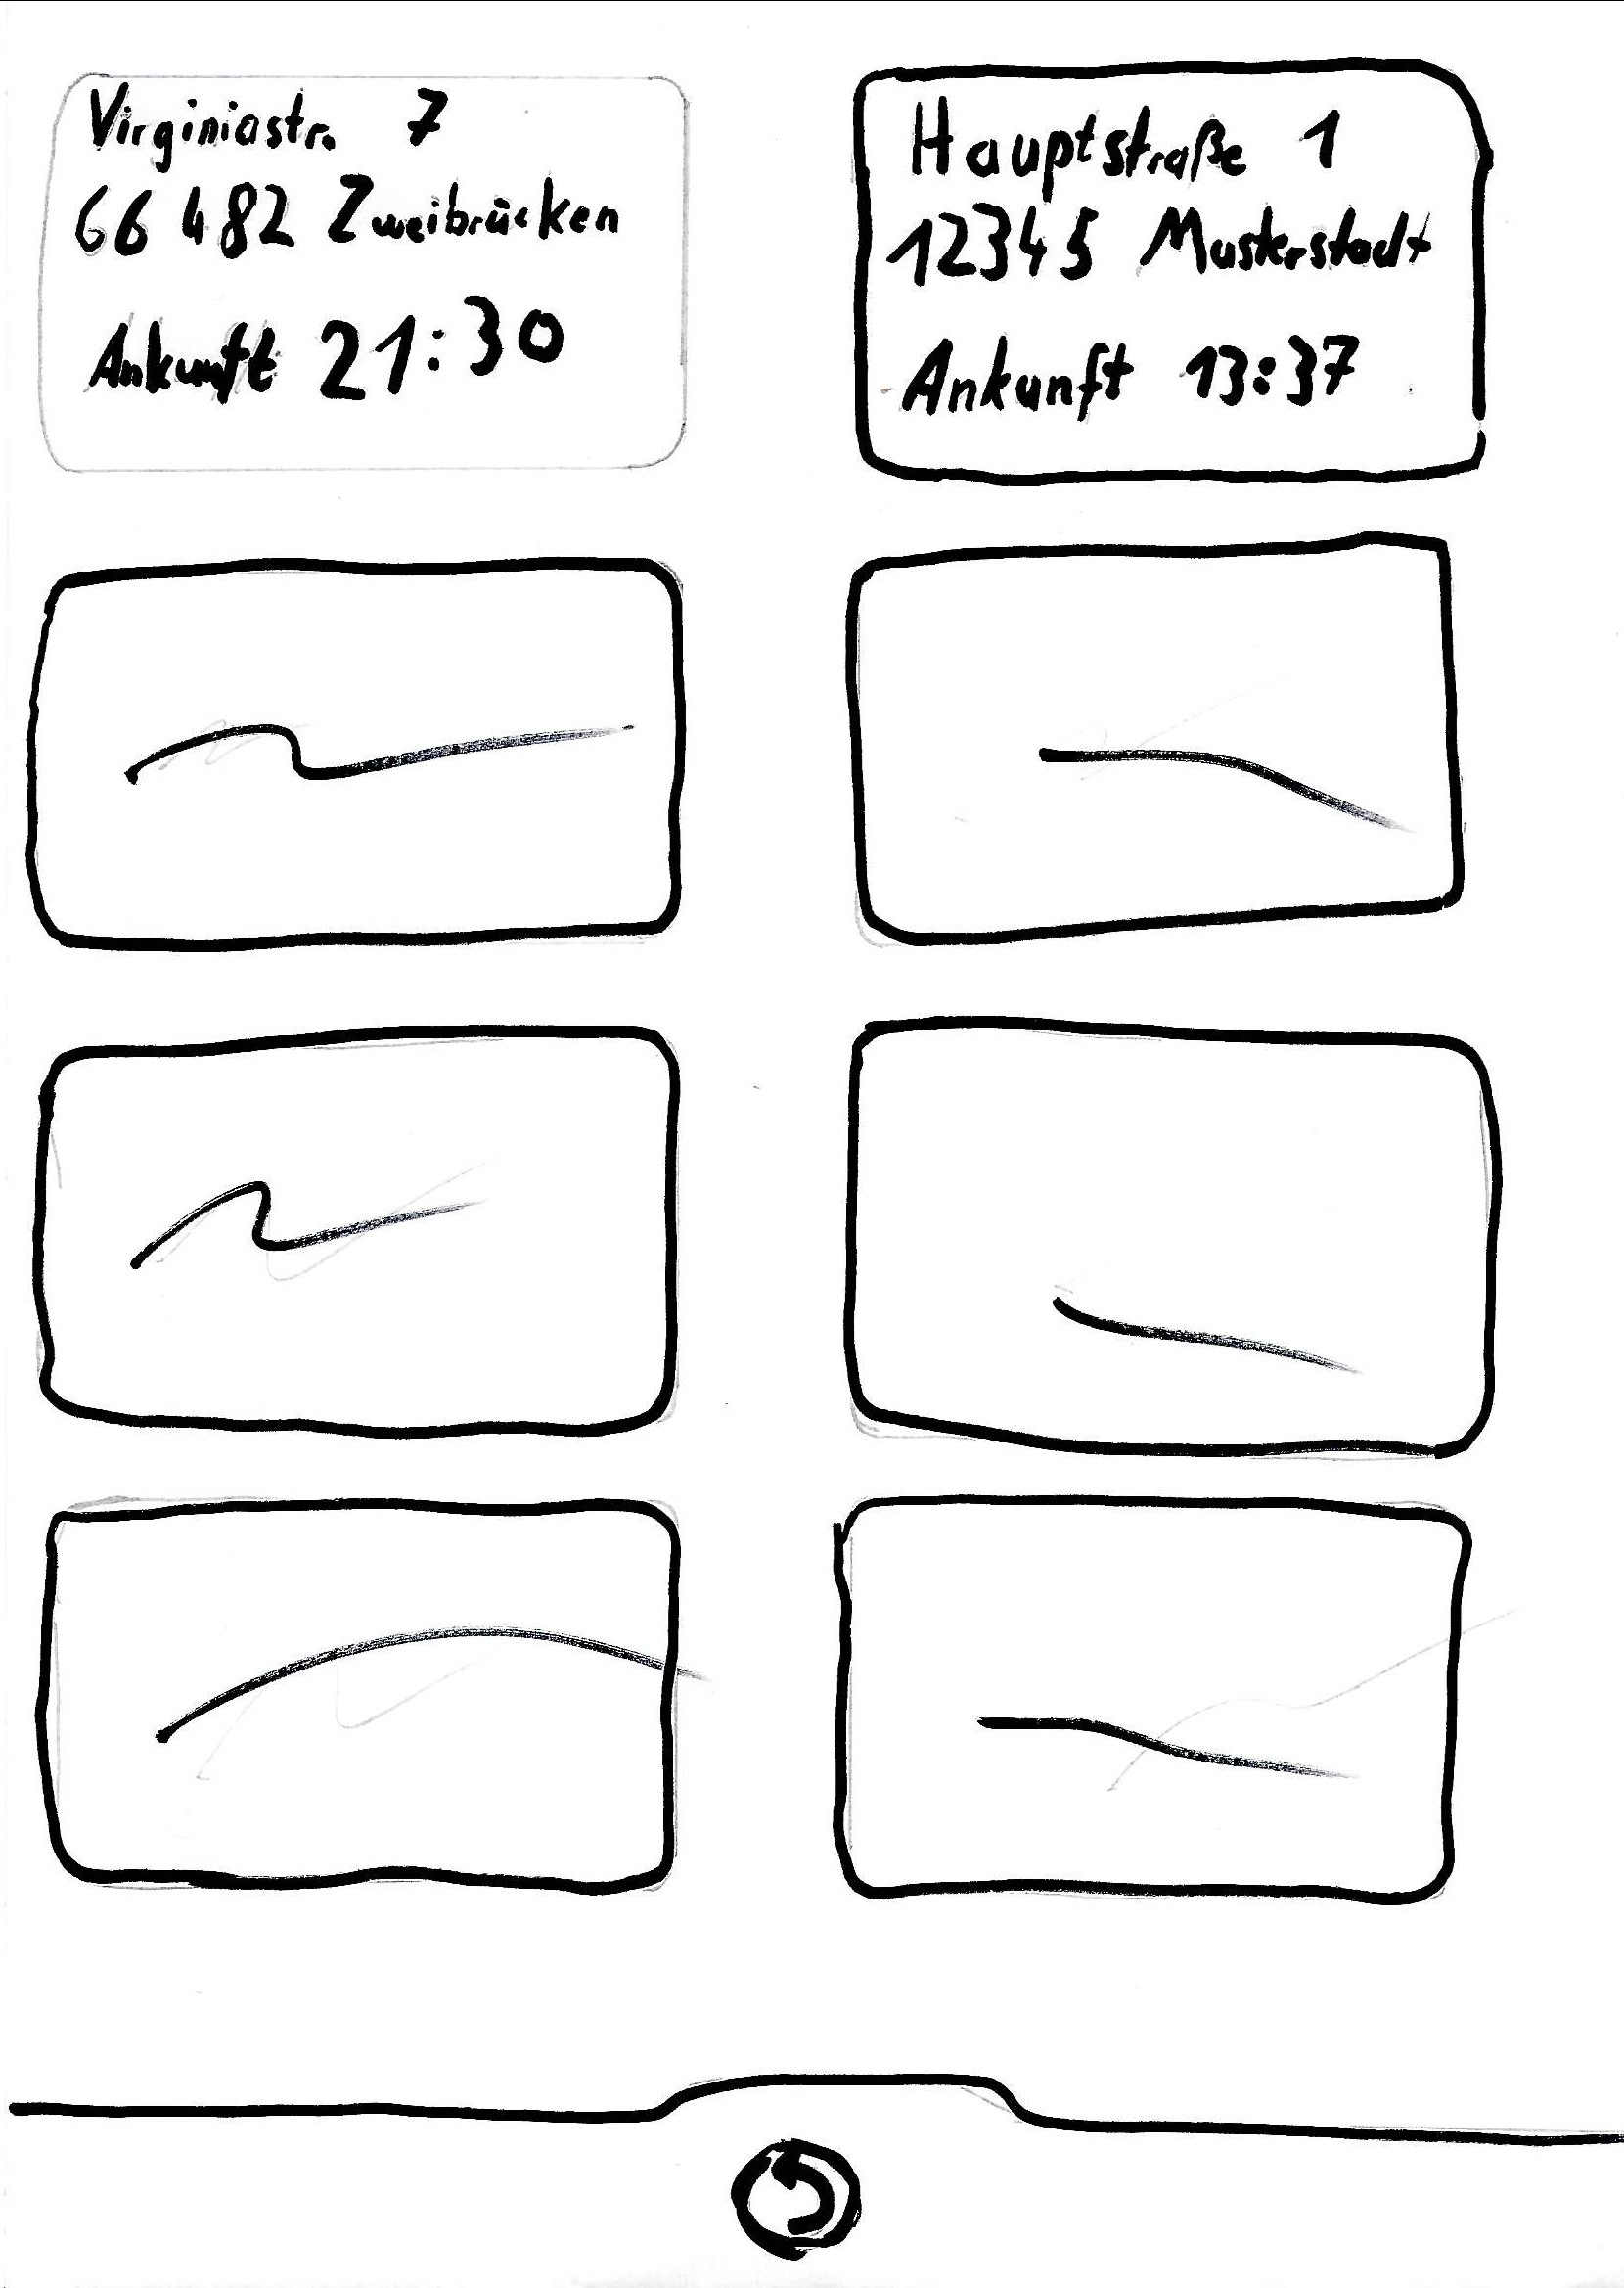 Virginiastr. 7
66482 Zweibrücken
Ankunft 21:30
Hauptstraße 1
12345 Musterstadt
Ankunft 13:37